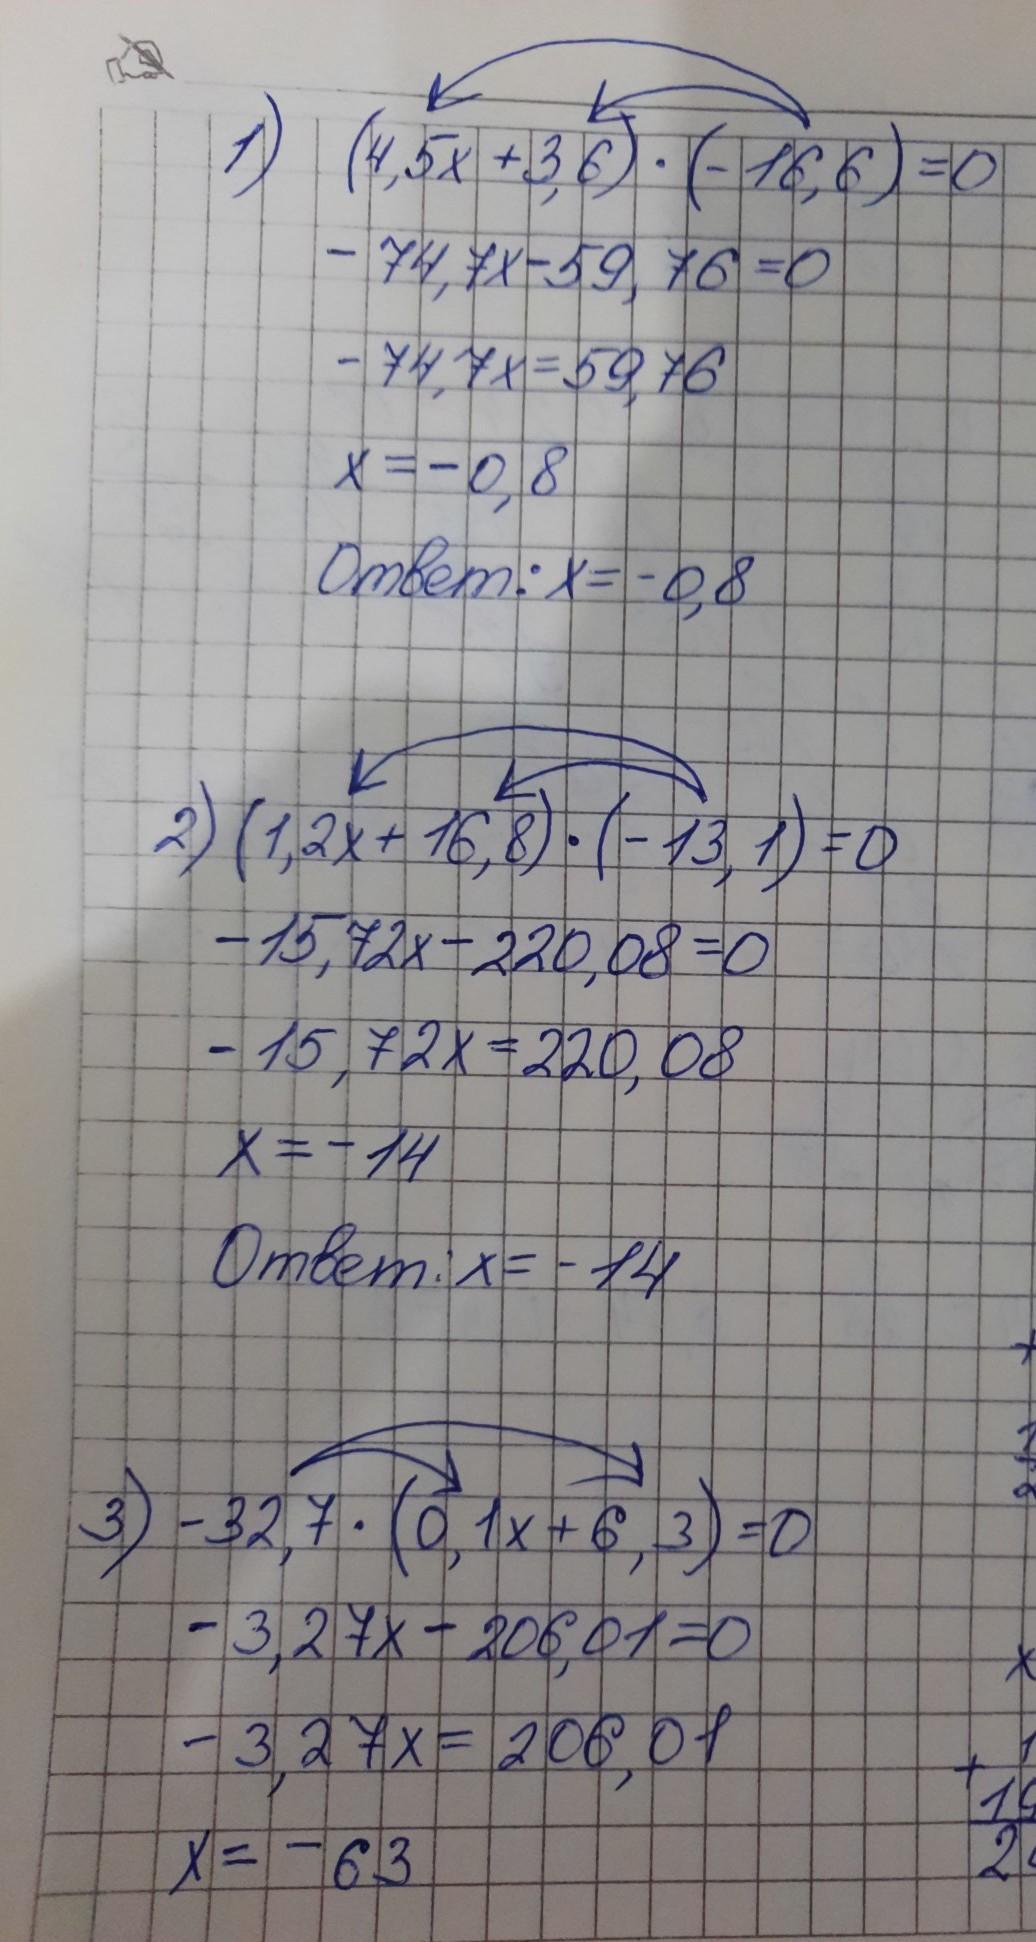 1) (4,5x + 3,6) · (- 16,6) = 0
- 74,7x - 59,76 = 0
- 74,7x = 59,76
x = - 0,8
Ответ: x = - 0,8
2) (1,2x + 16,8) · (- 13,1) = 0
- 15,72x - 220,08 = 0
- 15,72x = 220,08
x = - 14
Ответ: x = - 14
3) - 32,7 · (0,1x + 6,3) = 0
- 3,27x - 206,01 = 0
- 3,27x = 206,01
x = - 63